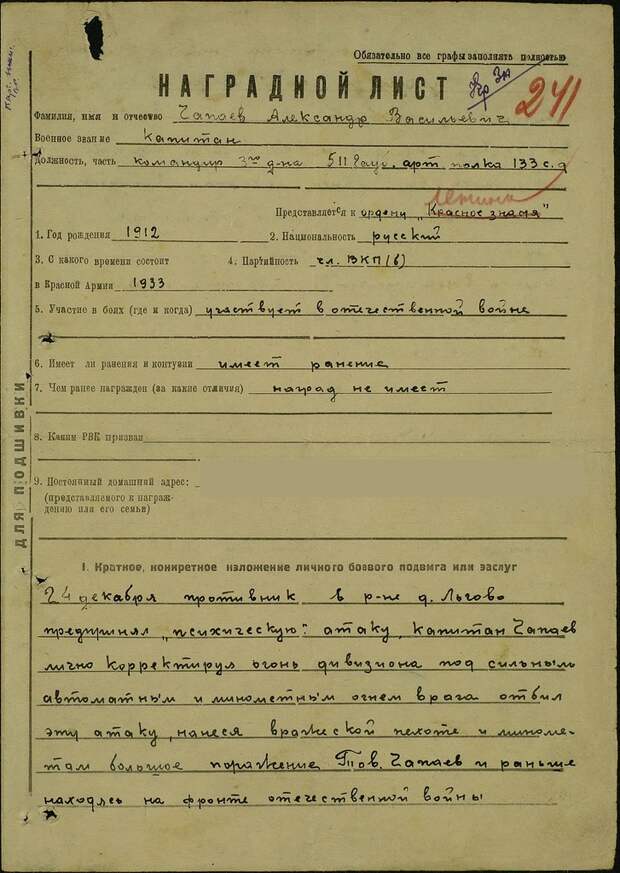 Обязательно все графы заполнять полностью
НАГРАДНОЙ ЛИСТ
241
Фамилия, имя и отчество Чапаев Александр Васильевич
Военное звание Капитан
Должность, часть командир 3го д-на 511 Гауб. арт. полка 133 с.д
Ленина
Представляется к ордену „Красное знамя"
1. Год рождения 1912 2. Национальность русский
3. С какого времени состоит 4. Партийность чл. ВКП(б)
в Красной Армии 1933
5. Участие в боях (где и когда) участвует в отечественной войне
6. Имеет ли ранения и контузии имеет ранение
7. Чем ранее награжден (за какие отличия) наград не имеет
8. Каким РВК призван
9. Постоянный домашний адрес:
(представляемого к награж-
дению или его семьи)
ДЛЯ ПОДШИВКИ
I. Краткое, конкретное изложение личного боевого подвига или заслуг
24 декабря противник в р-не д. Льгово
предпринял „психическую" атаку, капитан Чапаев
лично корректируя огонь дивизиона под сильным
автоматным и минометным огнем врага отбил
эту атаку, нанеся вражеской пехоте и миноме-
там большое поражение Тов. Чапаев и раньше
находясь на фронте отечественной войны